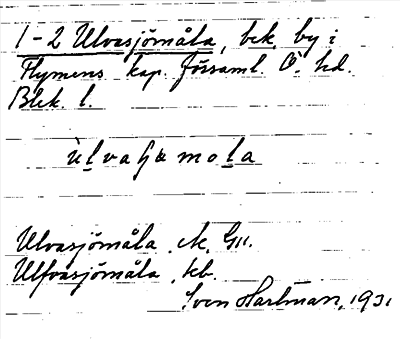 1-2 Ulvasjömåla, bek. by i
Flymens kap. församl. Ö. hd.
Blek. l.
Ulvasjömåla
Ulfvasjömåla, kb.
Sven Hartman, 1931